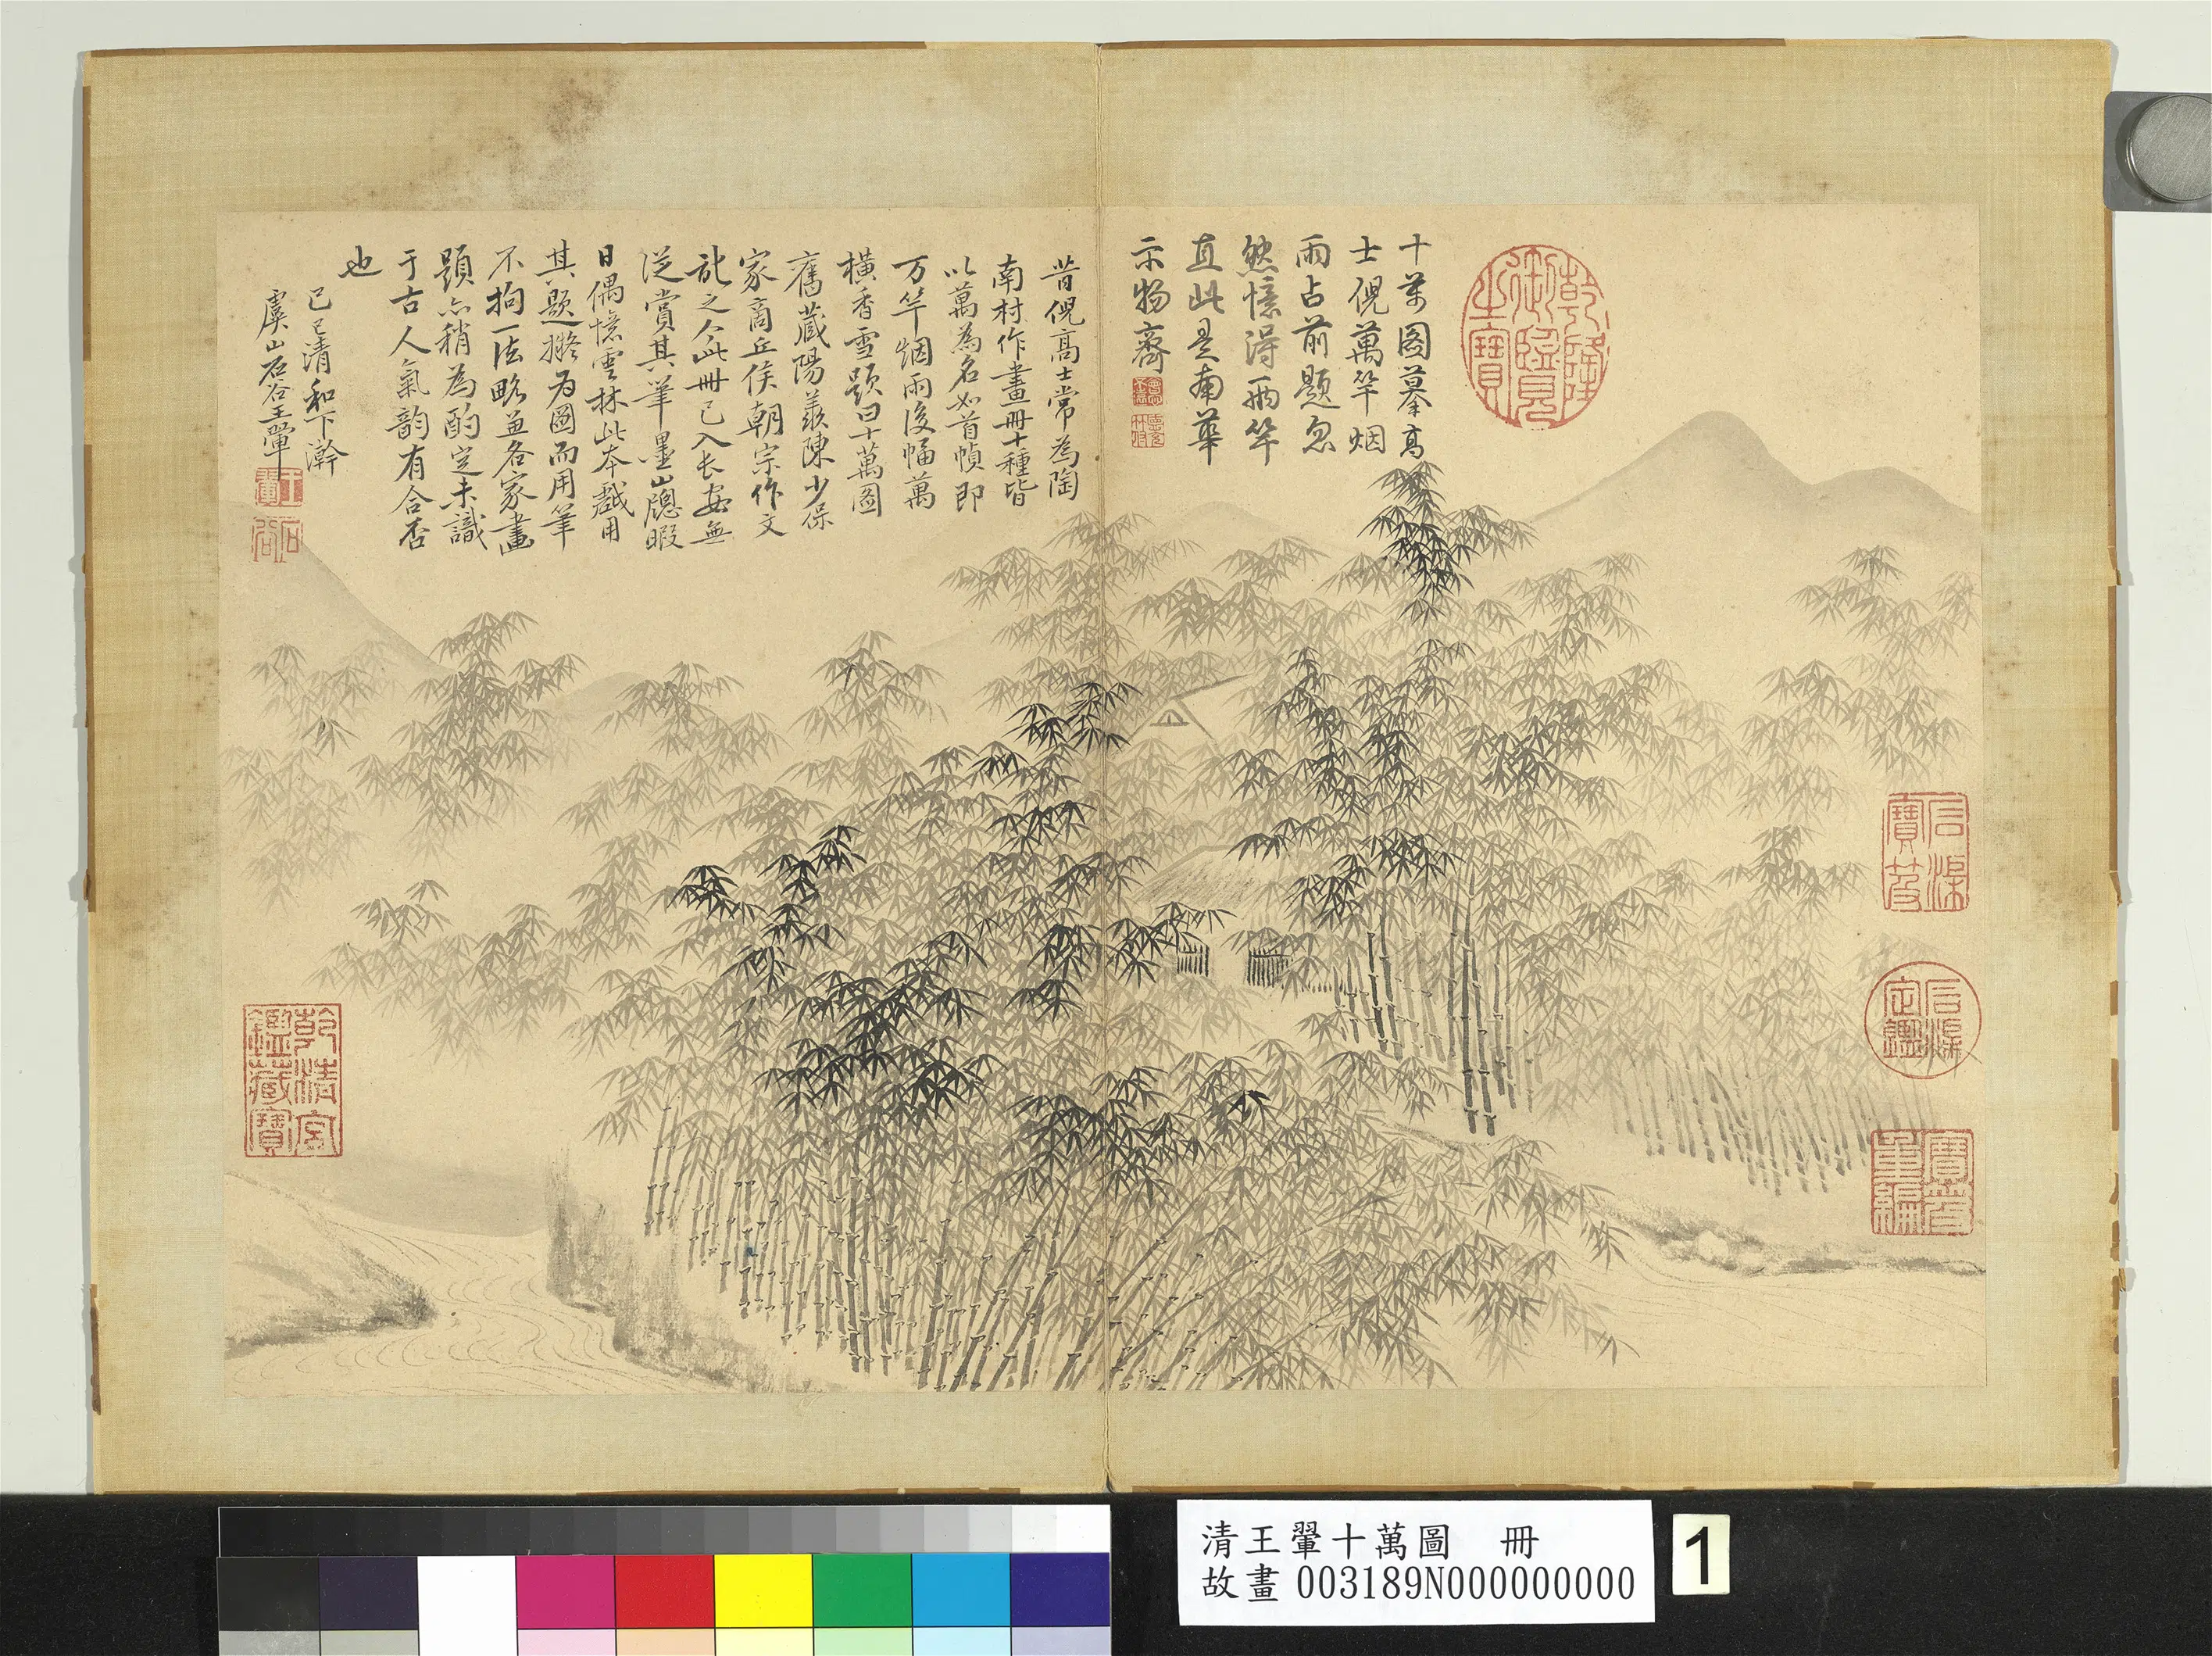 十萬圖摹高
士倪萬竿烟
雨占前題忽
然憶得兩竿
直此是南華
示物齊
昔倪高士常為陶
南村作畫冊十種皆
以萬為名如首幀即
万竿烟雨後幅萬
橫香雪題曰十萬圖
舊藏陽羨陳少保
家商丘侯朝宗作文
記之今此冊已入长安無
從賞其筆墨山牕暇
日偶憶雲林此本戲用
其題擬為圖而用筆
不拘一法略兼各家畫
題亦稍為酌定未識
于古人氣韵有合否
也
己巳清和下澣
虞山石谷王翬
王翬
石谷
乾隆御覽之寶
石渠寶笈
石渠定鑑
寶笈重編
乾清宮鑑藏寶
清王翬十萬圖 冊
故畫 003189N000000000
1